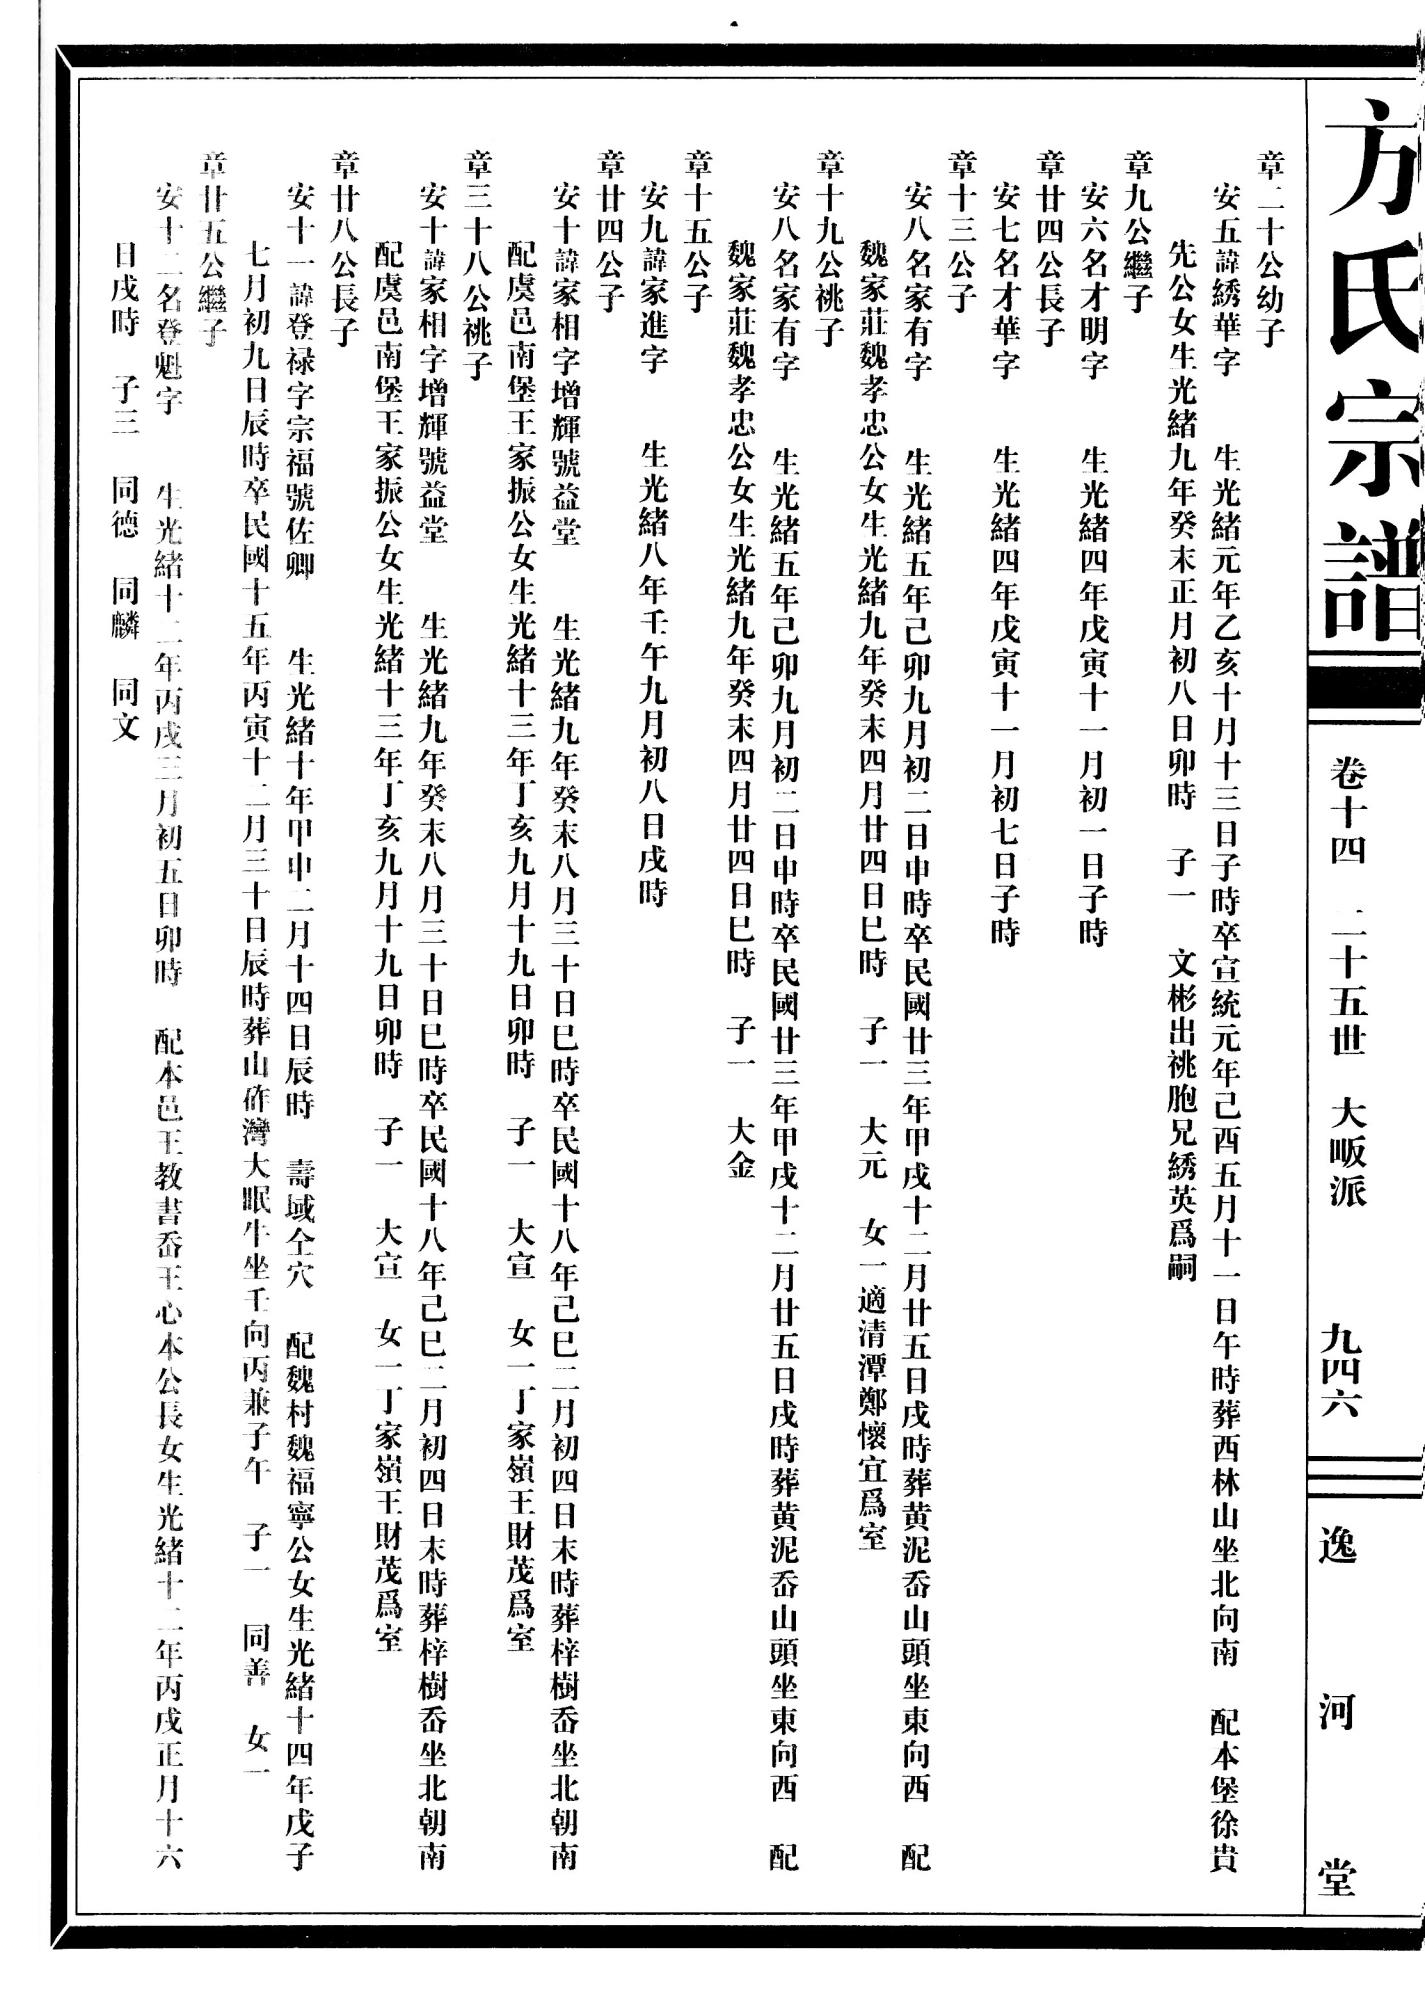 方氏宗譜
卷十四 二十五世 大畈派 九四六
逸河堂
章二十公幼子
安五諱綉華字 生光緒元年乙亥十月十三日子時卒宣統元年己酉五月十一日午時葬西林山坐北向南 配本堡徐貴
先公女生光緒九年癸未正月初八日卯時 子一 文彬出祧胞兄綉英爲嗣
章九公繼子
安六名才明字 生光緒四年戊寅十一月初一日子時
章廿四公長子
安七名才華字 生光緒四年戊寅十一月初七日子時
章十三公子
安八名家有字 生光緒五年己卯九月初二日申時卒民國廿三年甲戌十二月廿五日戌時葬黃泥岙山頭坐東向西 配
魏家莊魏孝忠公女生光緒九年癸未四月廿四日巳時 子一 大元 女一適清潭鄭懷宜爲室
章十九公祧子
安八名家有字 生光緒五年己卯九月初二日申時卒民國廿三年甲戌十二月廿五日戌時葬黃泥岙山頭坐東向西 配
魏家莊魏孝忠公女生光緒九年癸未四月廿四日巳時 子一 大金
章十五公子
安九諱家進字 生光緒八年壬午九月初八日戌時
章廿四公子
安十諱家相字增輝號益堂 生光緒九年癸未八月三十日巳時卒民國十八年己巳二月初四日未時葬梓樹岙坐北朝南
配虞邑南堡王家振公女生光緒十三年丁亥九月十九日卯時 子一 大宣 女一丁家嶺王財茂爲室
章三十八公祧子
安十諱家相字增輝號益堂 生光緒九年癸未八月三十日巳時卒民國十八年己巳二月初四日未時葬梓樹岙坐北朝南
配虞邑南堡王家振公女生光緒十三年丁亥九月十九日卯時 子一 大宣 女一丁家嶺王財茂爲室
章廿八公長子
安十一諱登禄字宗福號佐卿 生光緒十年甲申二月十四日辰時 壽域仝穴 配魏村魏福寧公女生光緒十四年戊子
七月初九日辰時卒民國十五年丙寅十二月三十日辰時葬山砟灣大眠牛坐壬向丙兼子午 子一 同善 女一
章廿五公繼子
安十二名登魁字 生光緒十二年丙戌三月初五日卯時 配本邑王教書岙王心本公長女生光緒十二年丙戌正月十六
日戌時 子三 同德 同麟 同文